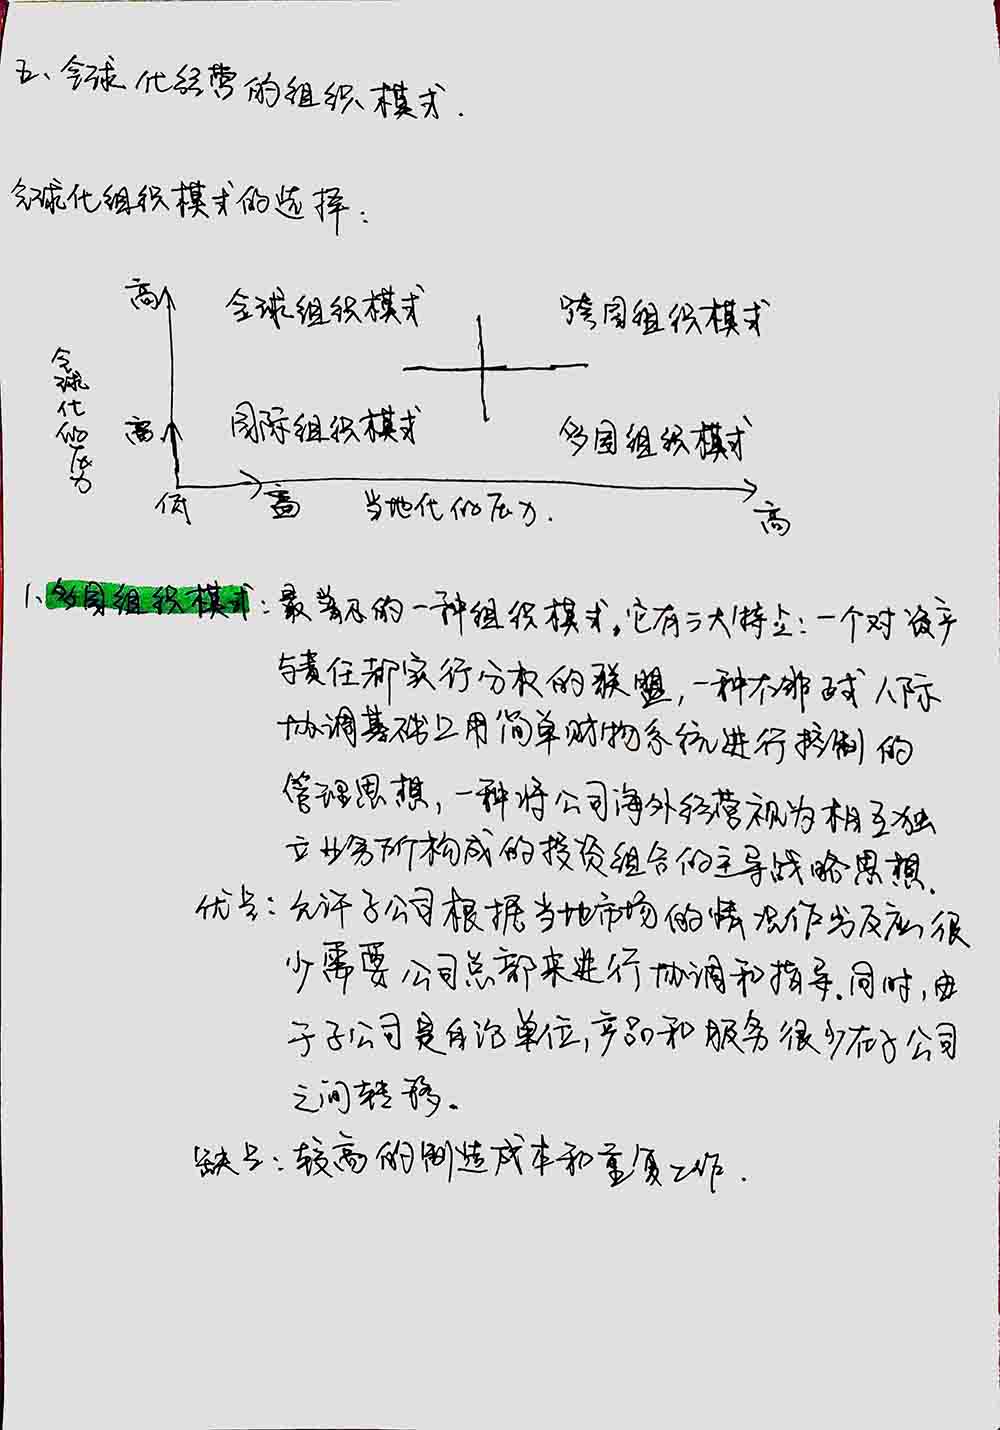 五、全球化经营的组织模式.
全球化组织模式的选择:
高
全球组织模式
跨国组织模式
全球化的压力
高
国际组织模式
多国组织模式
低
高
当地化的压力.
高
1、多国组织模式:最常见的一种组织模式。它有三大特点:一个对资产
与责任都实行分权的联盟,一种在非正式人际
协调基础上用简单财物系统进行控制的
管理思想,一种将公司海外经营视为相互独
立业务所构成的投资组合的主导战略思想.
优点:允许子公司根据当地市场的情况作出反应,很
少需要公司总部来进行协调和指导.同时,由
于子公司是自治单位,产品和服务很少在子公司
之间转移。
缺点:较高的制造成本和重复工作.